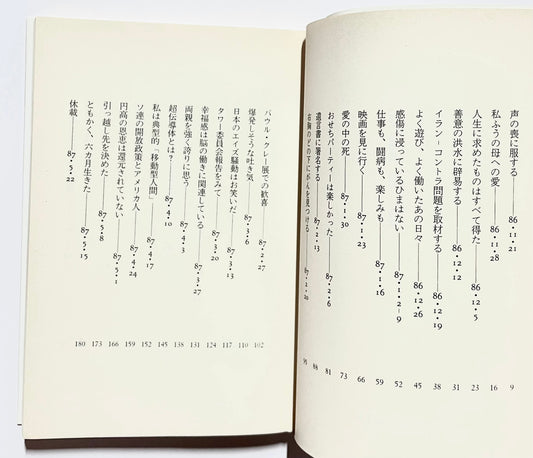 声の喪に服する 86・11・21 9
私ふうの母への愛 86・11・28 16
人生に求めたものはすべて得た 86・12・5 23
善意の洪水に辟易する 86・12・12 31
イラン−コントラ問題を取材する 86・12・19 38
よく遊び、よく働いたあの日々 86・12・26 45
感傷に浸っているひまはない 87・1・2−9 52
仕事も、闘病も、楽しみも 87・1・16 59
映画を見に行く 87・1・23 66
愛の中の死 87・1・30 73
おせちパーティーは楽しかった 87・2・6 81
遺言書に署名する 87・2・13 88
右胸のどの下にがんを見つける 87・2・20 95
パウル・クレー展での歓喜 87・2・27 102
爆発しそうな吐き気 87・3・6 110
日本のエイズ騒動はお笑いだ 87・3・13 117
タワー委員会報告をみて 87・3・20 124
幸福感は脳の働きに関連している 87・3・27 131
両親を強く誇りに思う 87・4・3 138
超伝導体とは? 87・4・10 145
私は典型的「移動型人間」 87・4・17 152
ソ連の開放政策とアメリカ人 87・4・24 159
円高の恩恵は還元されていない 87・5・1 166
引っ越し先を決めた 87・5・8 173
ともかく、六カ月生きた 87・5・15 180
休載 87・5・22